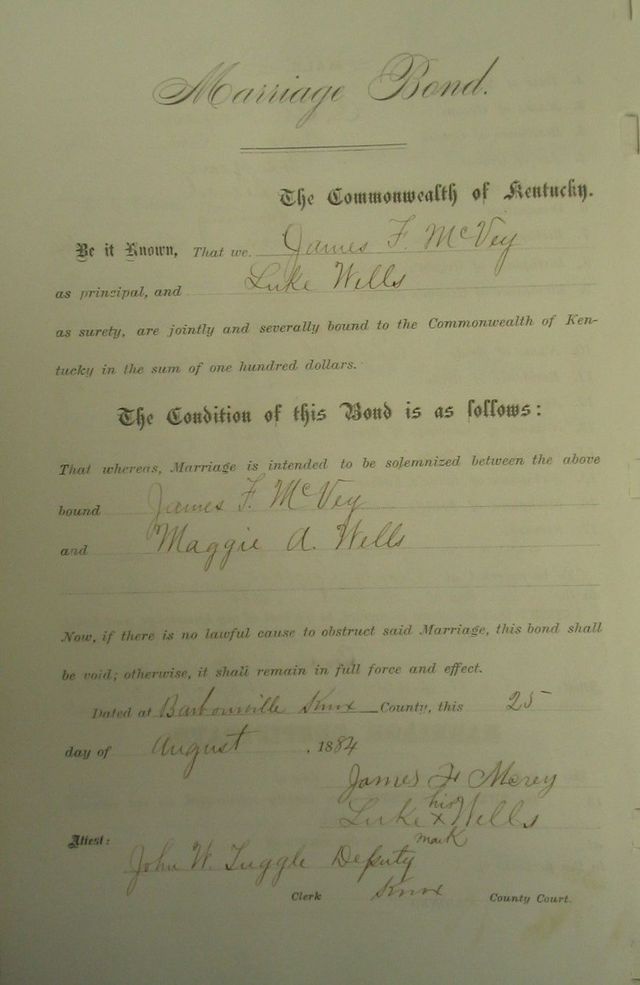 Marriage Bond.
The Commonwealth of Kentucky.
Be it Known, That we. James F. McVey
as principal, and Luke Wells
as surety, are jointly and severally bound to the Commonwealth of Ken-
tucky in the sum of one hundred dollars.
The Condition of this Bond is as follows:
That whereas, Marriage is intended to be solemnized between the above
bound James F. McVey
and Maggie A. Wells
Now, if there is no lawful cause to obstruct said Marriage, this bond shall
be void; otherwise, it shall remain in full force and effect.
Dated at Barbourville Knox County, this 25
day of August , 1884
James F. Mcvey
his
Luke x Wells
mark
Attest:
John W. Tuggle Deputy
Clerk Knox County Court.